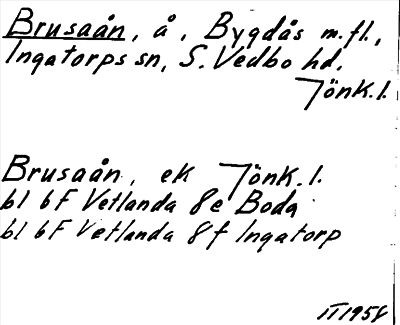 Brusaån, å, Bygdås m.fl.,
Ingatorps sn, S. Vedbo hd.
Jönk. l.
Brusaån, ek Jönk. l.
bl 6F Vetlanda 8e Boda
bl 6F Vetlanda 8f Ingatorp
II 1958